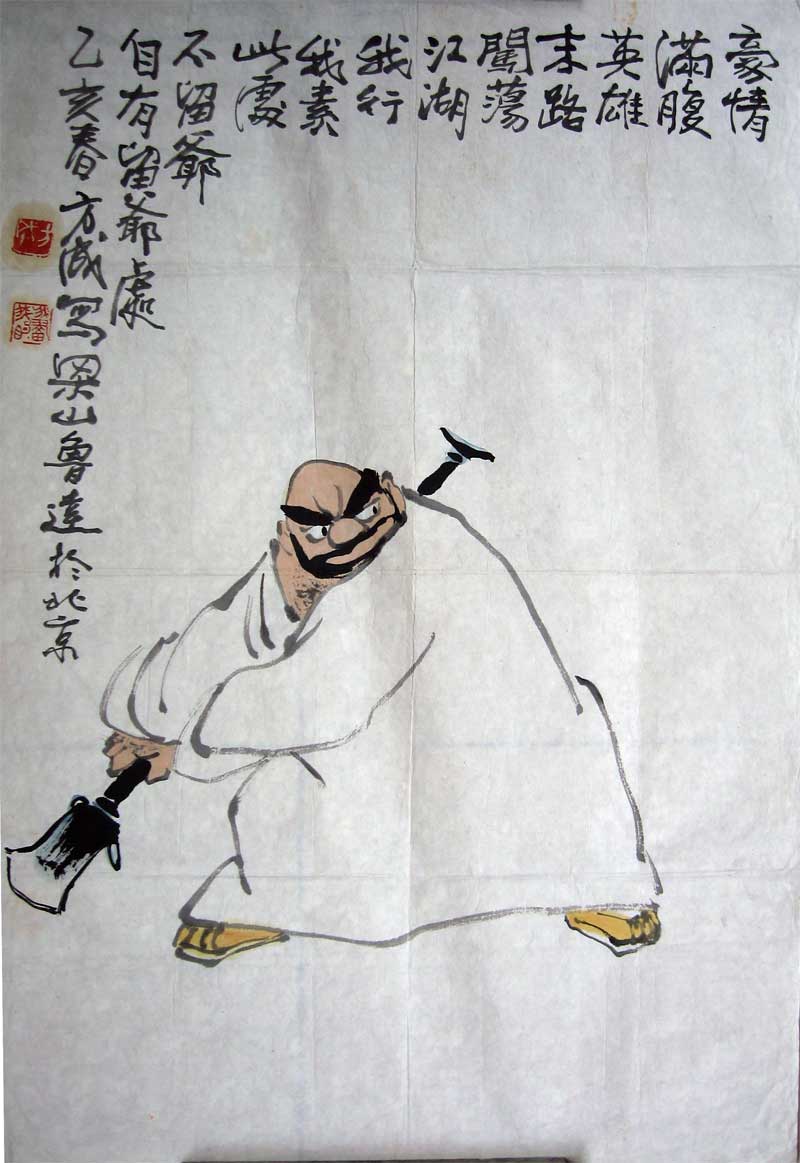 豪情
滿腹
英雄
末路
闖蕩
江湖
我行
我素
此處
不留爺
自有留爺處
乙亥春方成寫梁山魯達於北京
方成